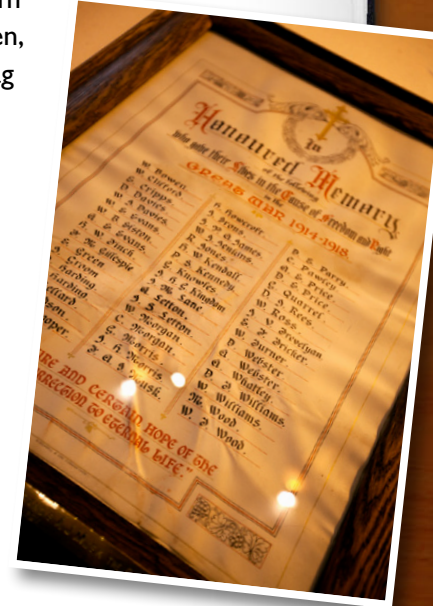 en,
g
In
Honoured Memory
of the following
Who gave their Lives in the Cause of Freedom and Right
in the
GREAT WAR 1914-1918.
W. Bowen.
W. Clifford.
Cripps.
Davis.
Davies.
E. Evans.
G. Evans.
W. Finch.
M. Gillespie
Green
Groom
Harding
Harding
ellard
son.
ooper.
Howcroft.
Ivons.
James.
Jenkins.
Jones.
W. Kendall.
S. Kennedy.
Knowles
E. Kingdom
M. Lane
A. Lefton.
S. Lefton.
W. Morgan.
C. Morgan.
G. Morris
Morris.
E. Parry.
C. Pawley
E. Price
Price
G. Quartel
A. Rees.
W. Ross
Trevelyan
F. Tricker.
W. Turner.
D. Webster
A. Webster.
A. Whatley.
D. J. Williams.
W. Williams.
M. Wood.
W. J. Wood.
RE AND CERTAIN HOPE OF THE
RRECTION TO ETERNAL LIFE."